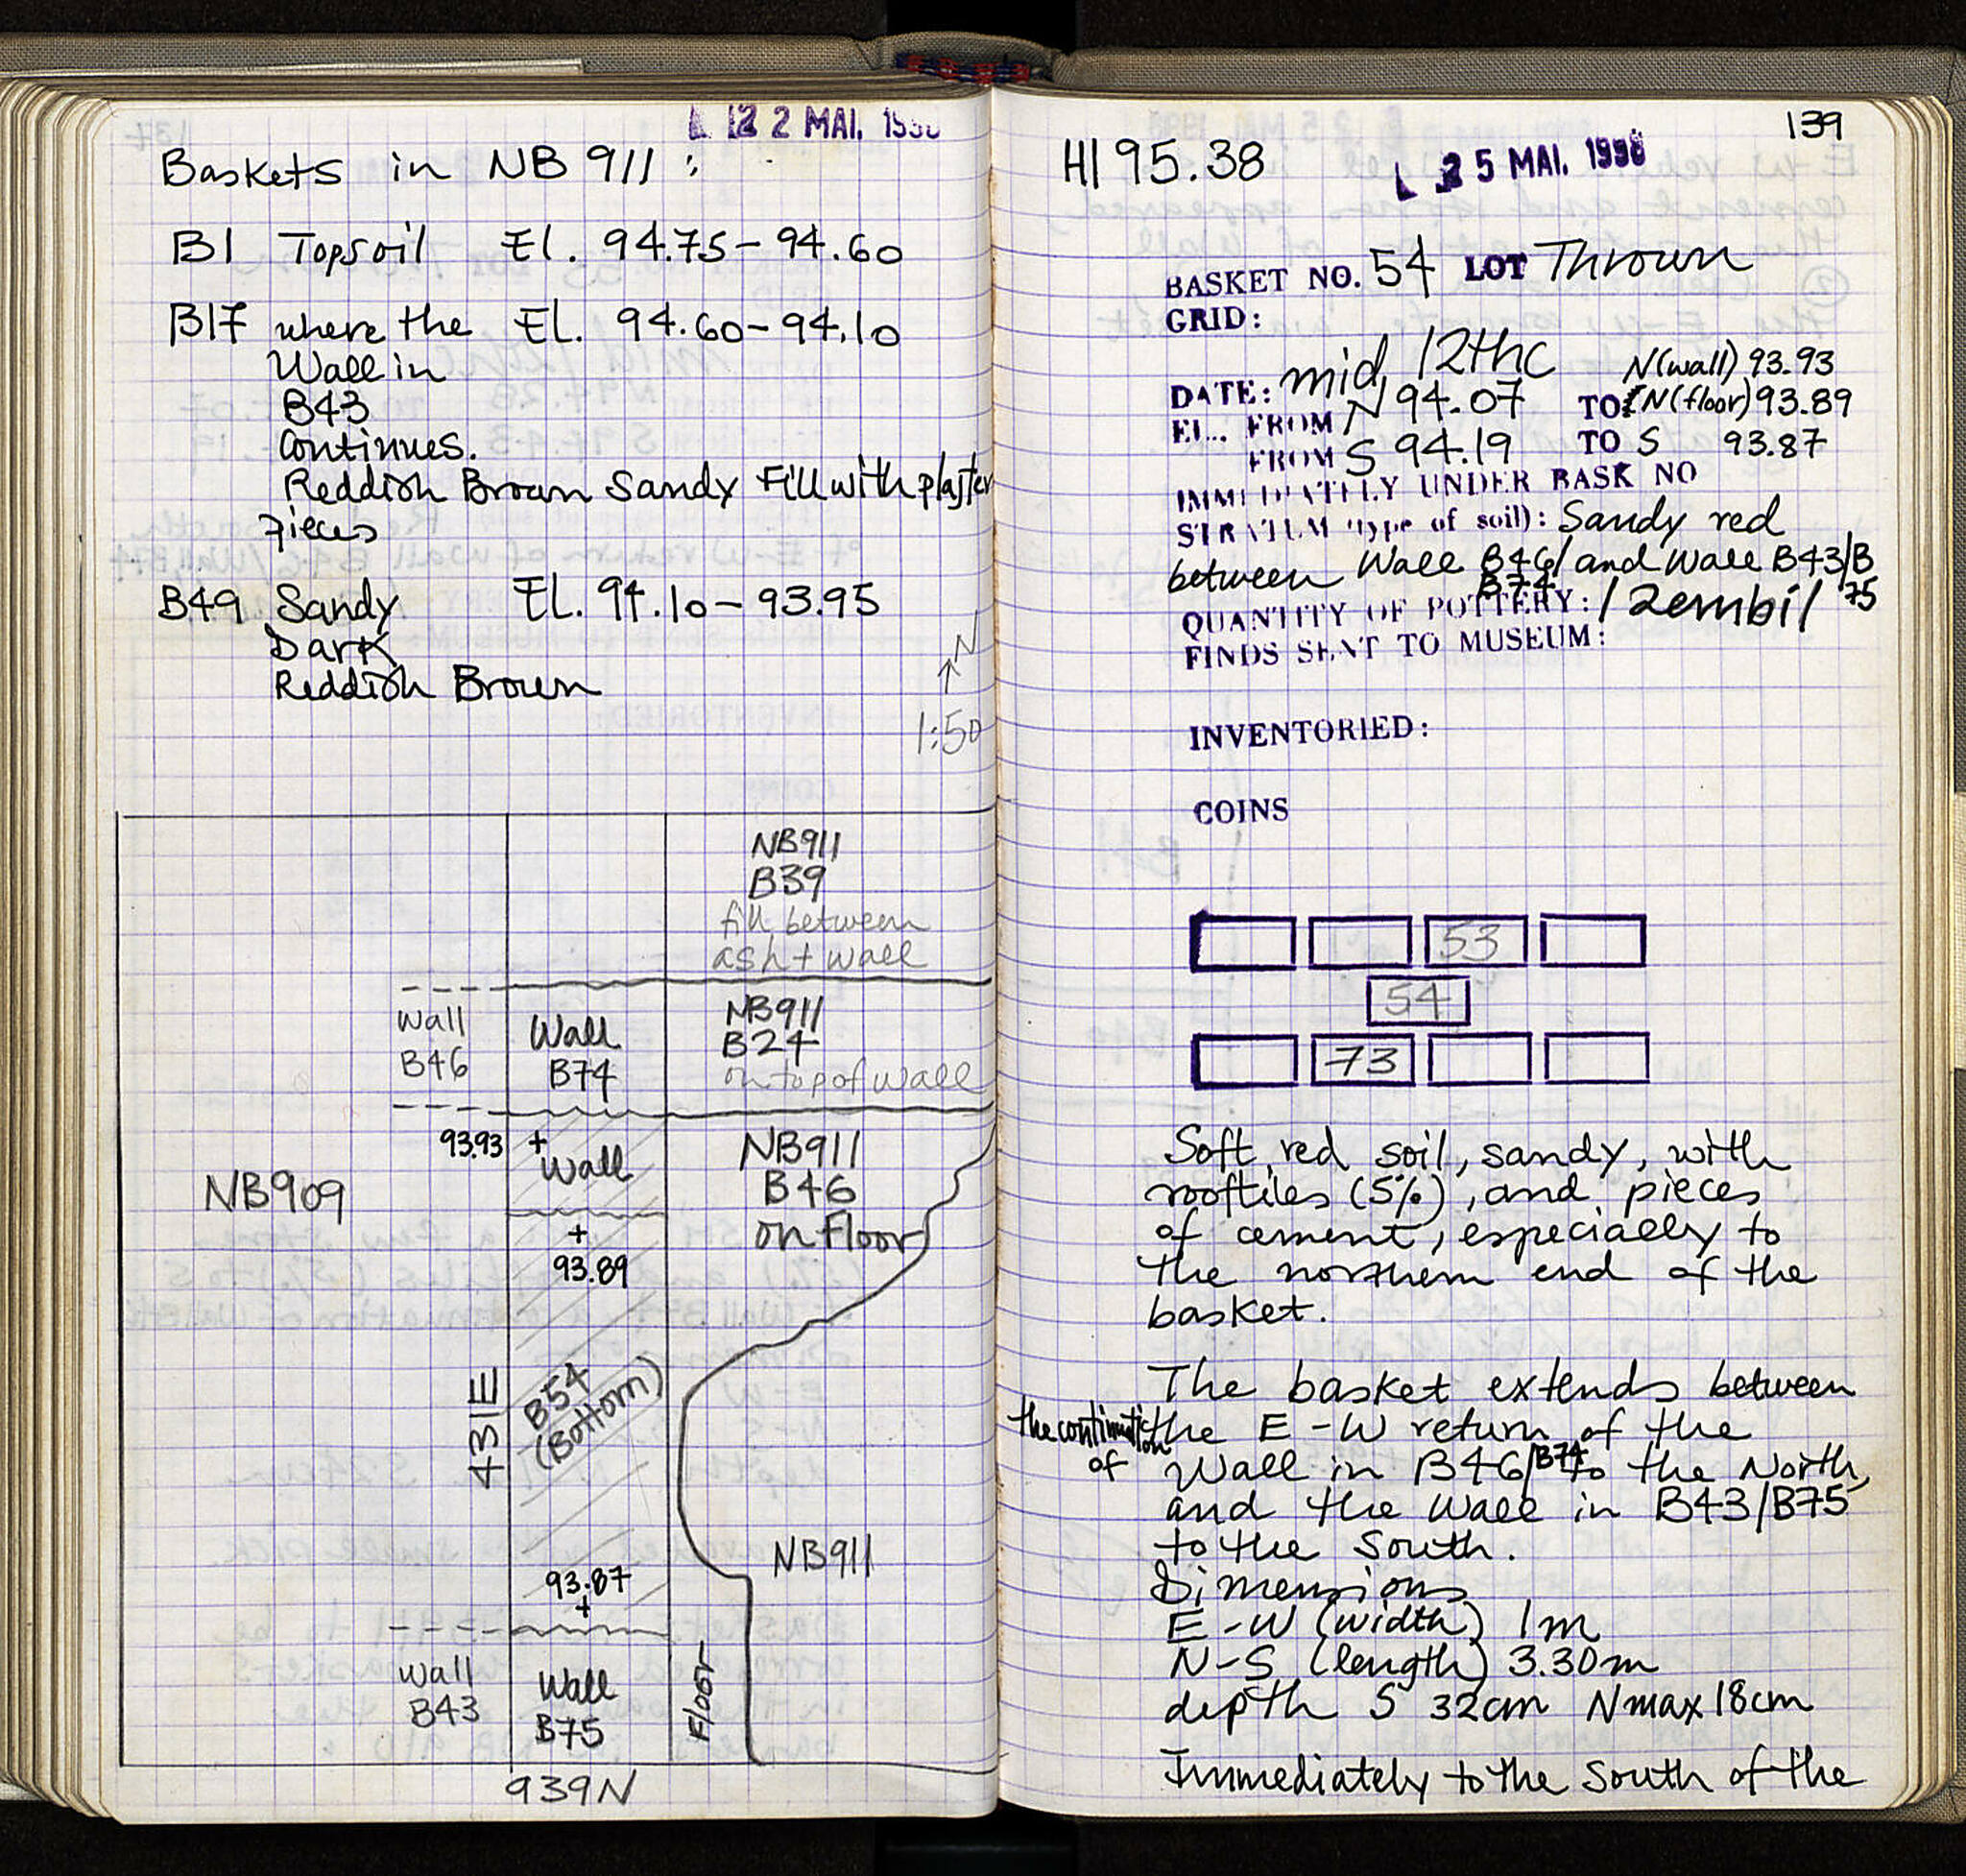 2 2 MAI. 199
Baskets in NB 911 :
B1 Topsoil El. 94.75 - 94.60
B17 where the El. 94.60 - 94.10
Wall in
B43
Continues.
Reddish Brown Sandy Fill with plaster
pieces
B49 Sandy El. 94.10 - 93.95
Dark
Reddish Brown
N
1:50
NB911
B39
fill between
ash + wall
Wall
B46
Wall
B74
NB911
B24
on top of wall
93.93 +
Wall
NB911
B46
on Floor
NB909
+
93.89
431E
B54
(Bottom)
NB911
93.87
+
Wall
B43
Wall
B75
Floor
939N
139
HI 95.38
25 MAI. 1998
BASKET NO. 54 LOT Thrown
GRID:
DATE: mid 12thc N(wall) 93.93
EL. FROM N 94.07 TO N(floor) 93.89
FROM S 94.19 TO S 93.87
IMMEDIATELY UNDER BASK NO
STRATUM (type of soil): Sandy red
between Wall B46/B74 and Wall B43/B75
QUANTITY OF POTTERY: 1 Zembil
FINDS SENT TO MUSEUM:
INVENTORIED:
COINS
53
54
73
Soft red soil, sandy, with
rooftiles (5%), and pieces
of cement, especially to
the northern end of the
basket.
The basket extends between
the continuation of the E-W return of the
Wall in B46/B74 to the North,
and the Wall in B43/B75
to the South.
Dimensions
E-W (width) 1m
N-S (length) 3.30m
depth S 32cm N max 18cm
Immediately to the South of the